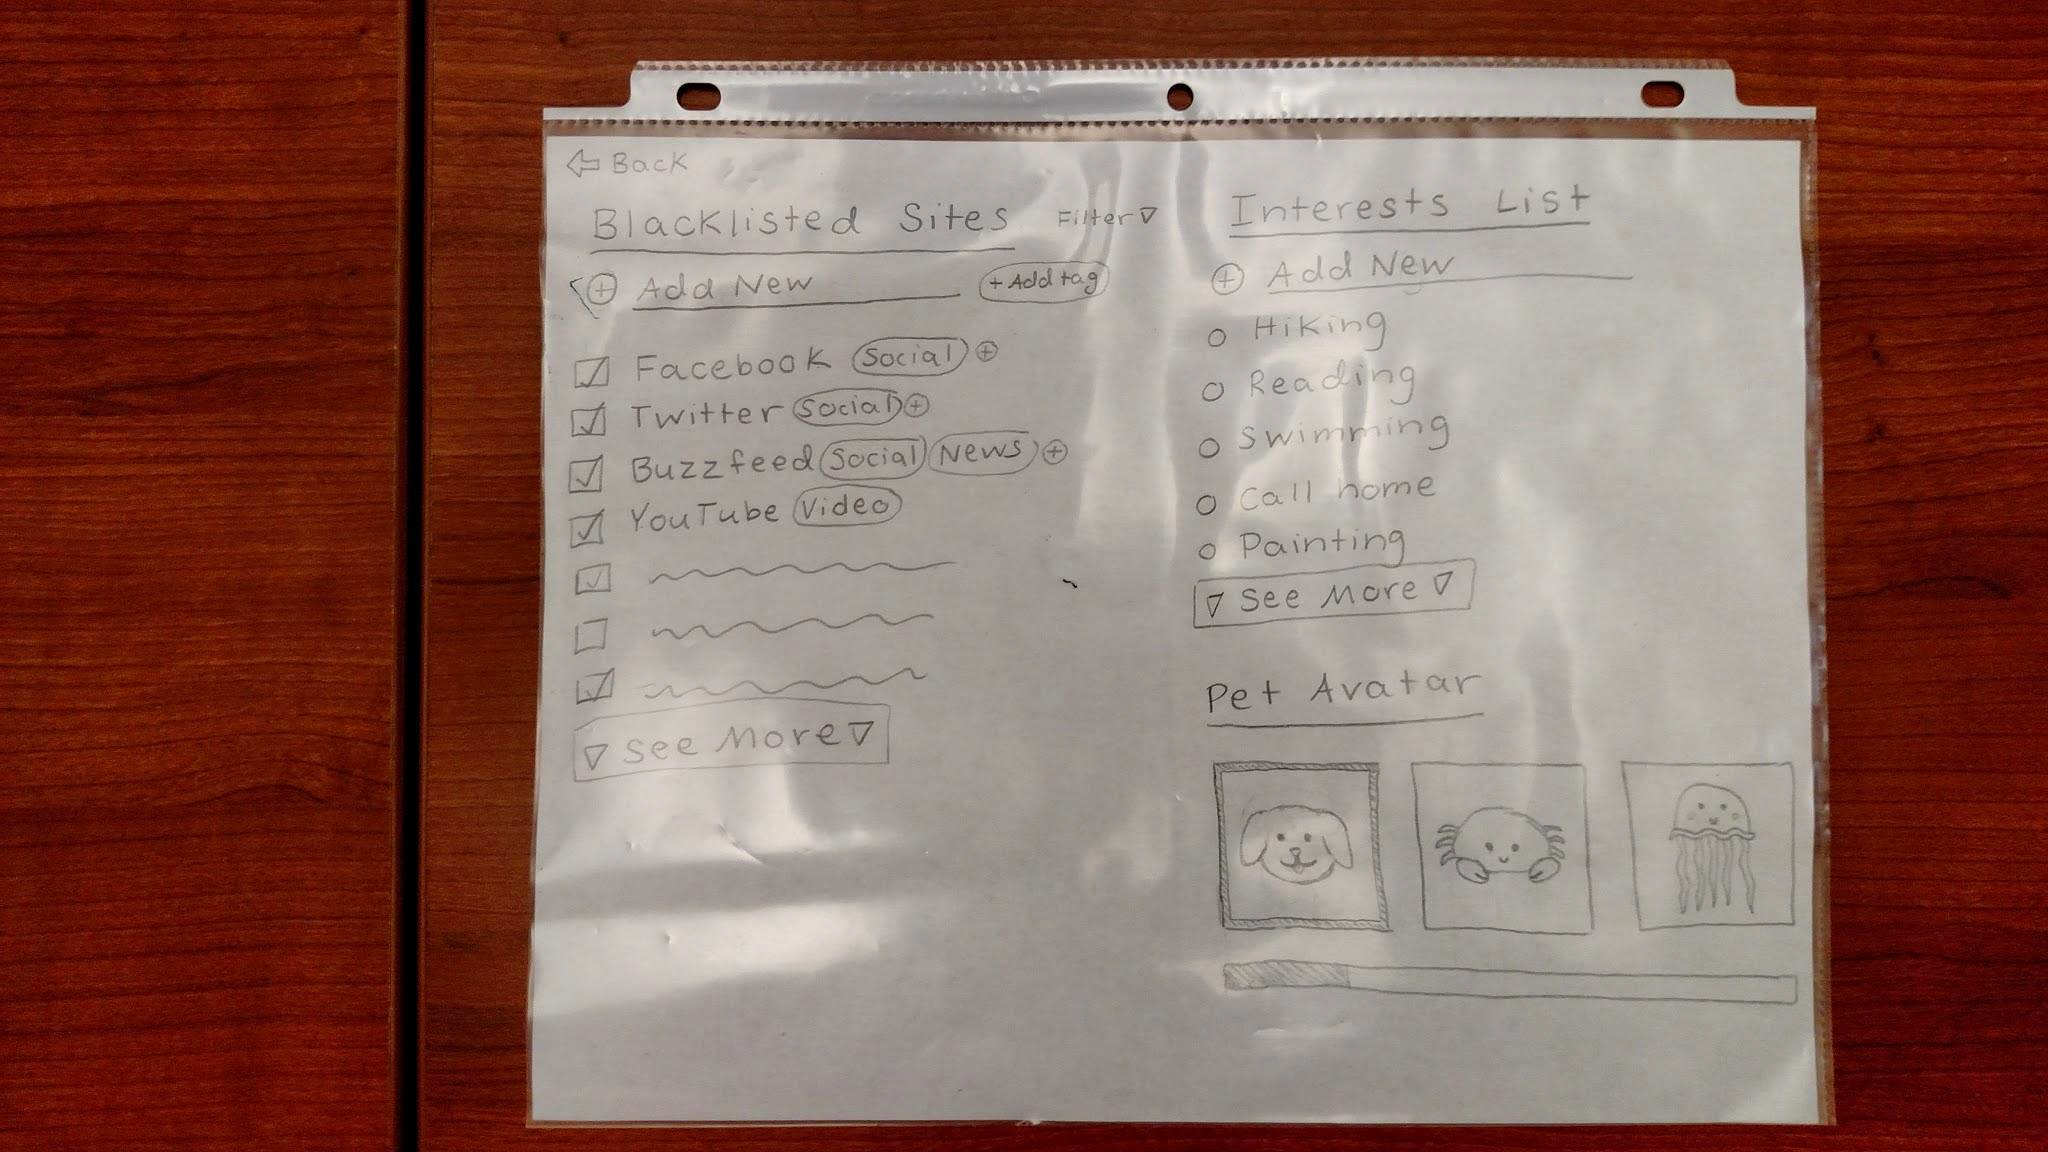 Back
Blacklisted Sites Filter
+ Add New + Add tag
Facebook Social +
Twitter Social +
Buzzfeed Social News +
YouTube Video
See More
Interests List
+ Add New
Hiking
Reading
Swimming
Call home
Painting
See More
Pet Avatar